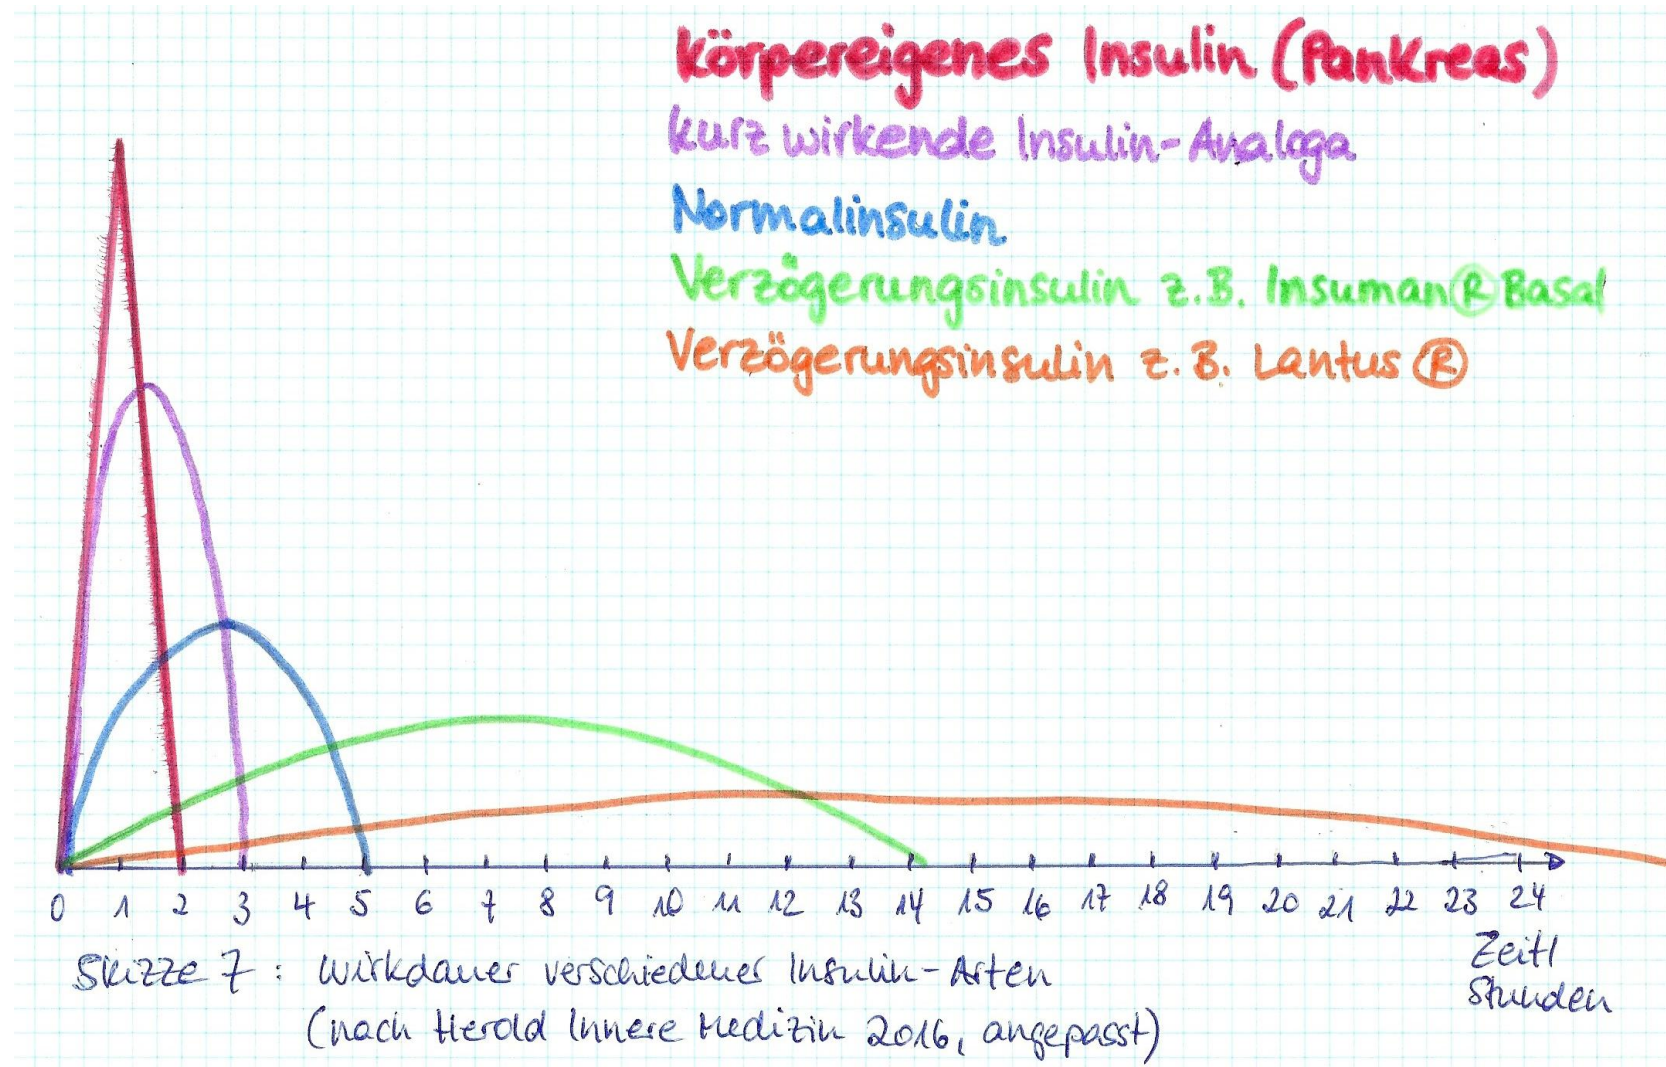 Körpereigenes Insulin (Pankreas)
kurz wirkende Insulin-Analoga
Normalinsulin
Verzögerungsinsulin z.B. Insuman® Basal
Verzögerungsinsulin z.B. Lantus ®
0 1 2 3 4 5 6 7 8 9 10 11 12 13 14 15 16 17 18 19 20 21 22 23 24
Zeit/
Stunden
Skizze 7: Wirkdauer verschiedener Insulin-Arten
(nach Herold Innere Medizin 2016, angepasst)